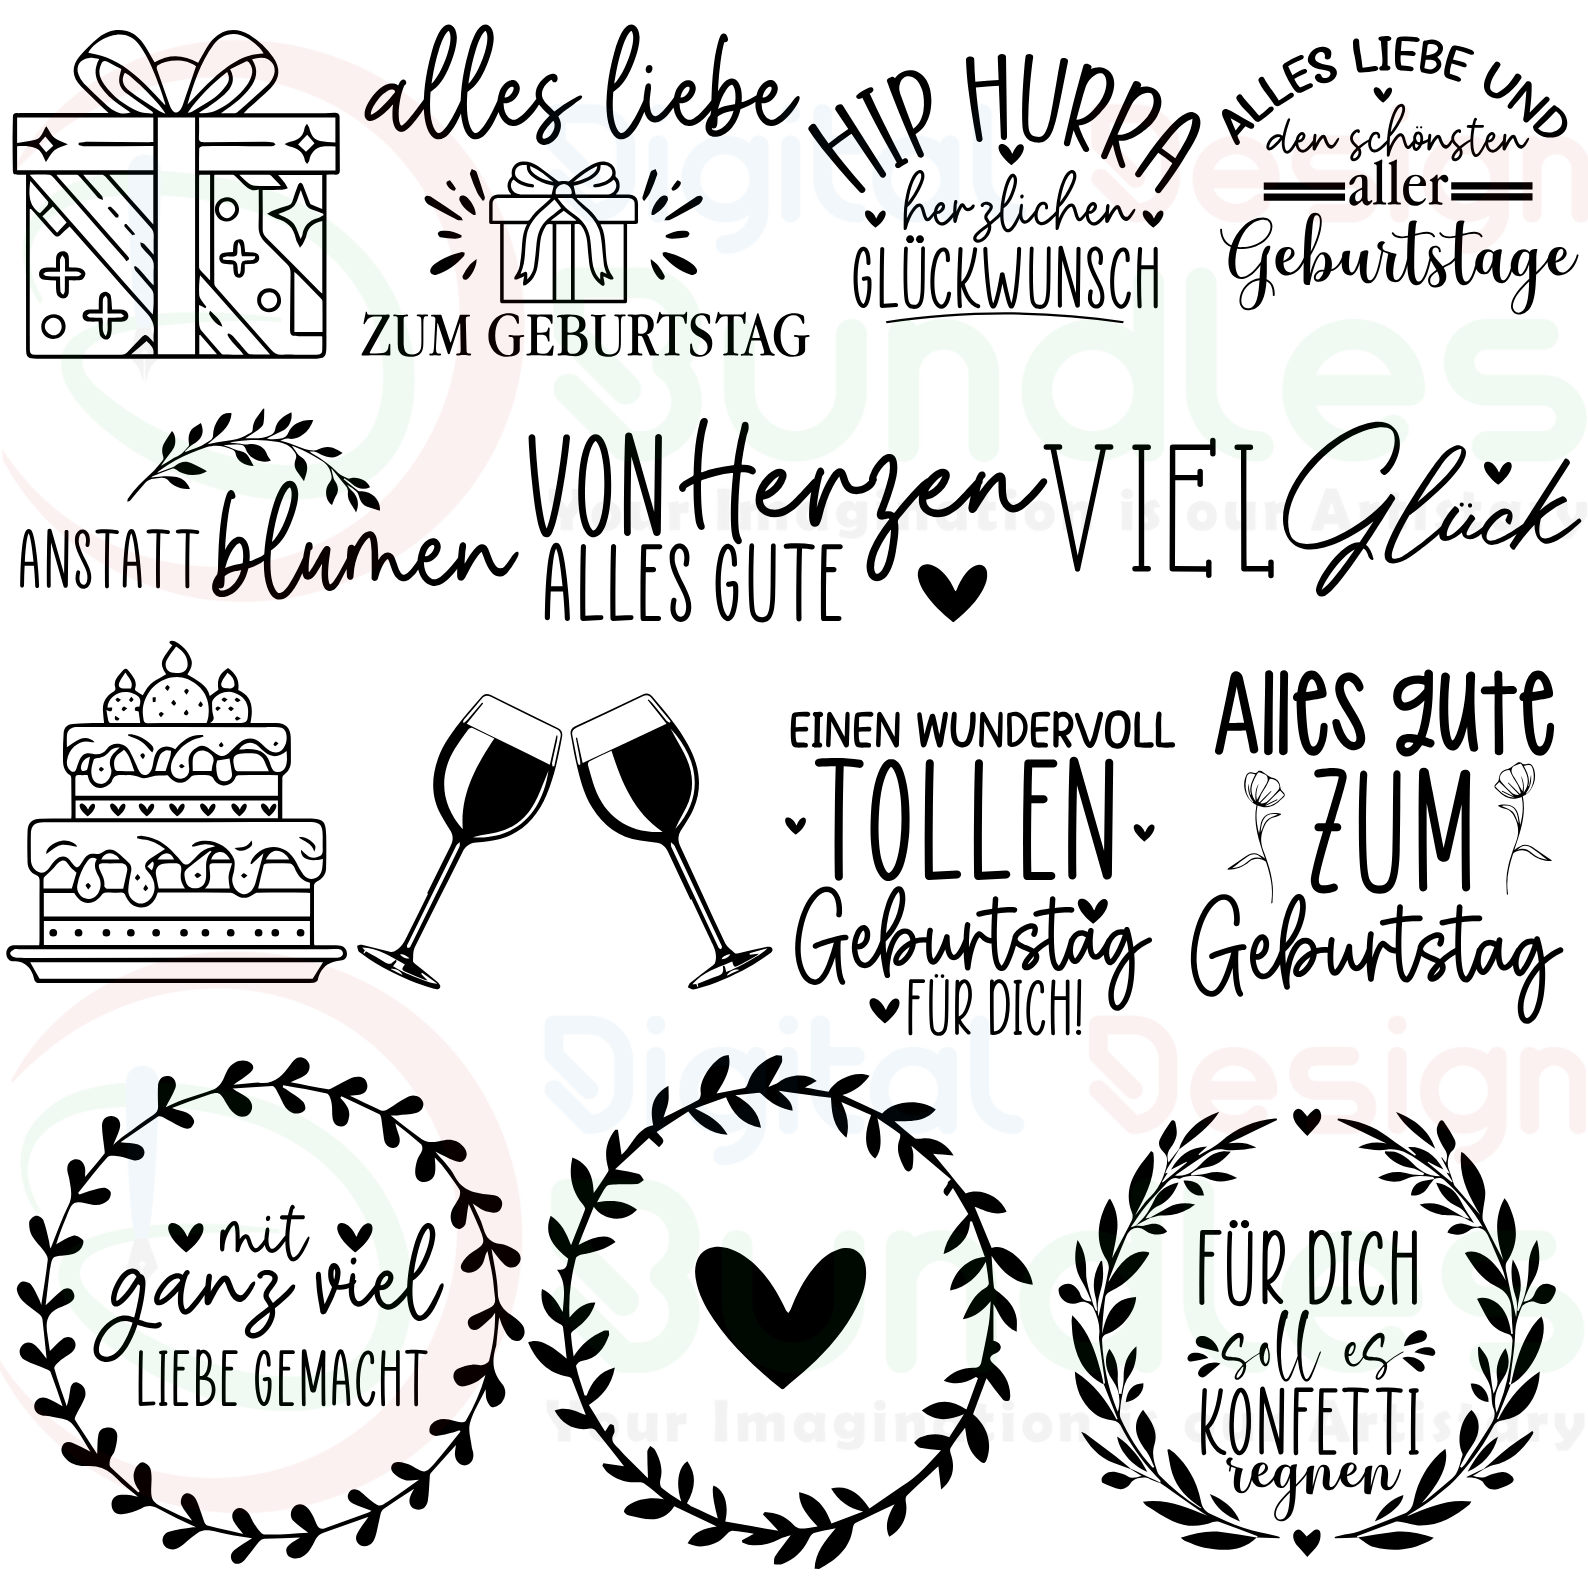 alles liebe
ZUM GEBURTSTAG
HIP HURRA
herzlichen
GLÜCKWUNSCH
ALLES LIEBE UND
den schönsten
aller
Geburtstage
ANSTATT blumen
VON Herzen
ALLES GUTE
VIEL Glück
EINEN WUNDERVOLL
TOLLEN
Geburtstag
FÜR DICH!
Alles gute
ZUM
Geburtstag
mit
ganz viel
LIEBE GEMACHT
FÜR DICH
soll es
KONFETTI
regnen
Digital Design
Bundles
Your Imagination is our Artistary
Digital Design
Bundles
Your Imagination is our Artistary